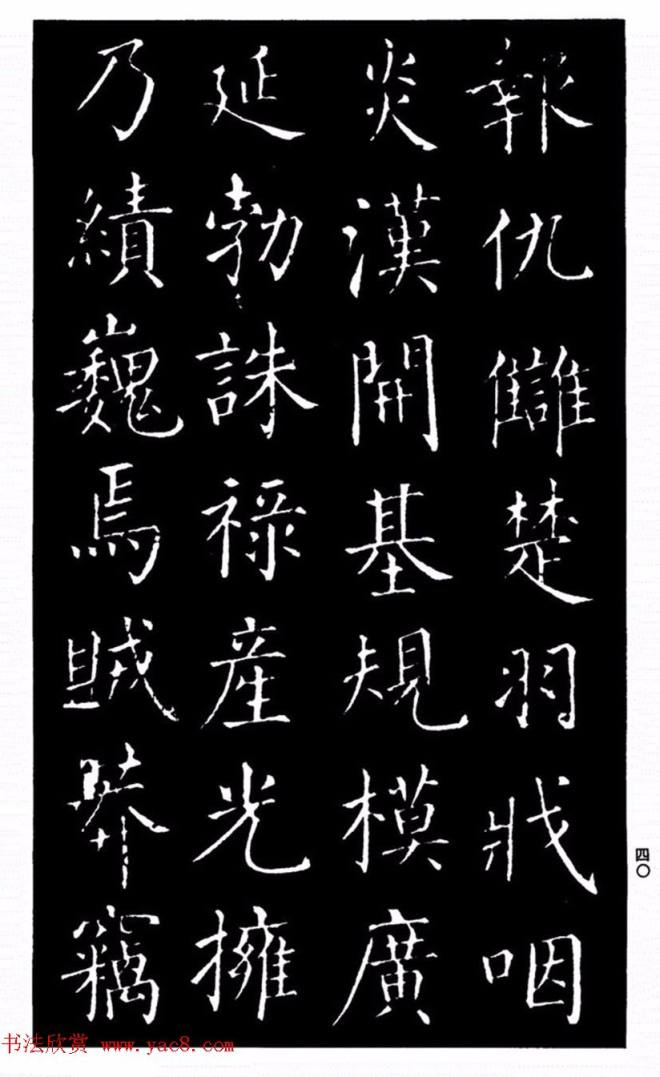 報仇讎楚羽戕咽
炎漢開基規模廣
延勃誅祿產光擁
乃績巍焉賊莽竊
四〇
书法欣赏 www.yac8.com